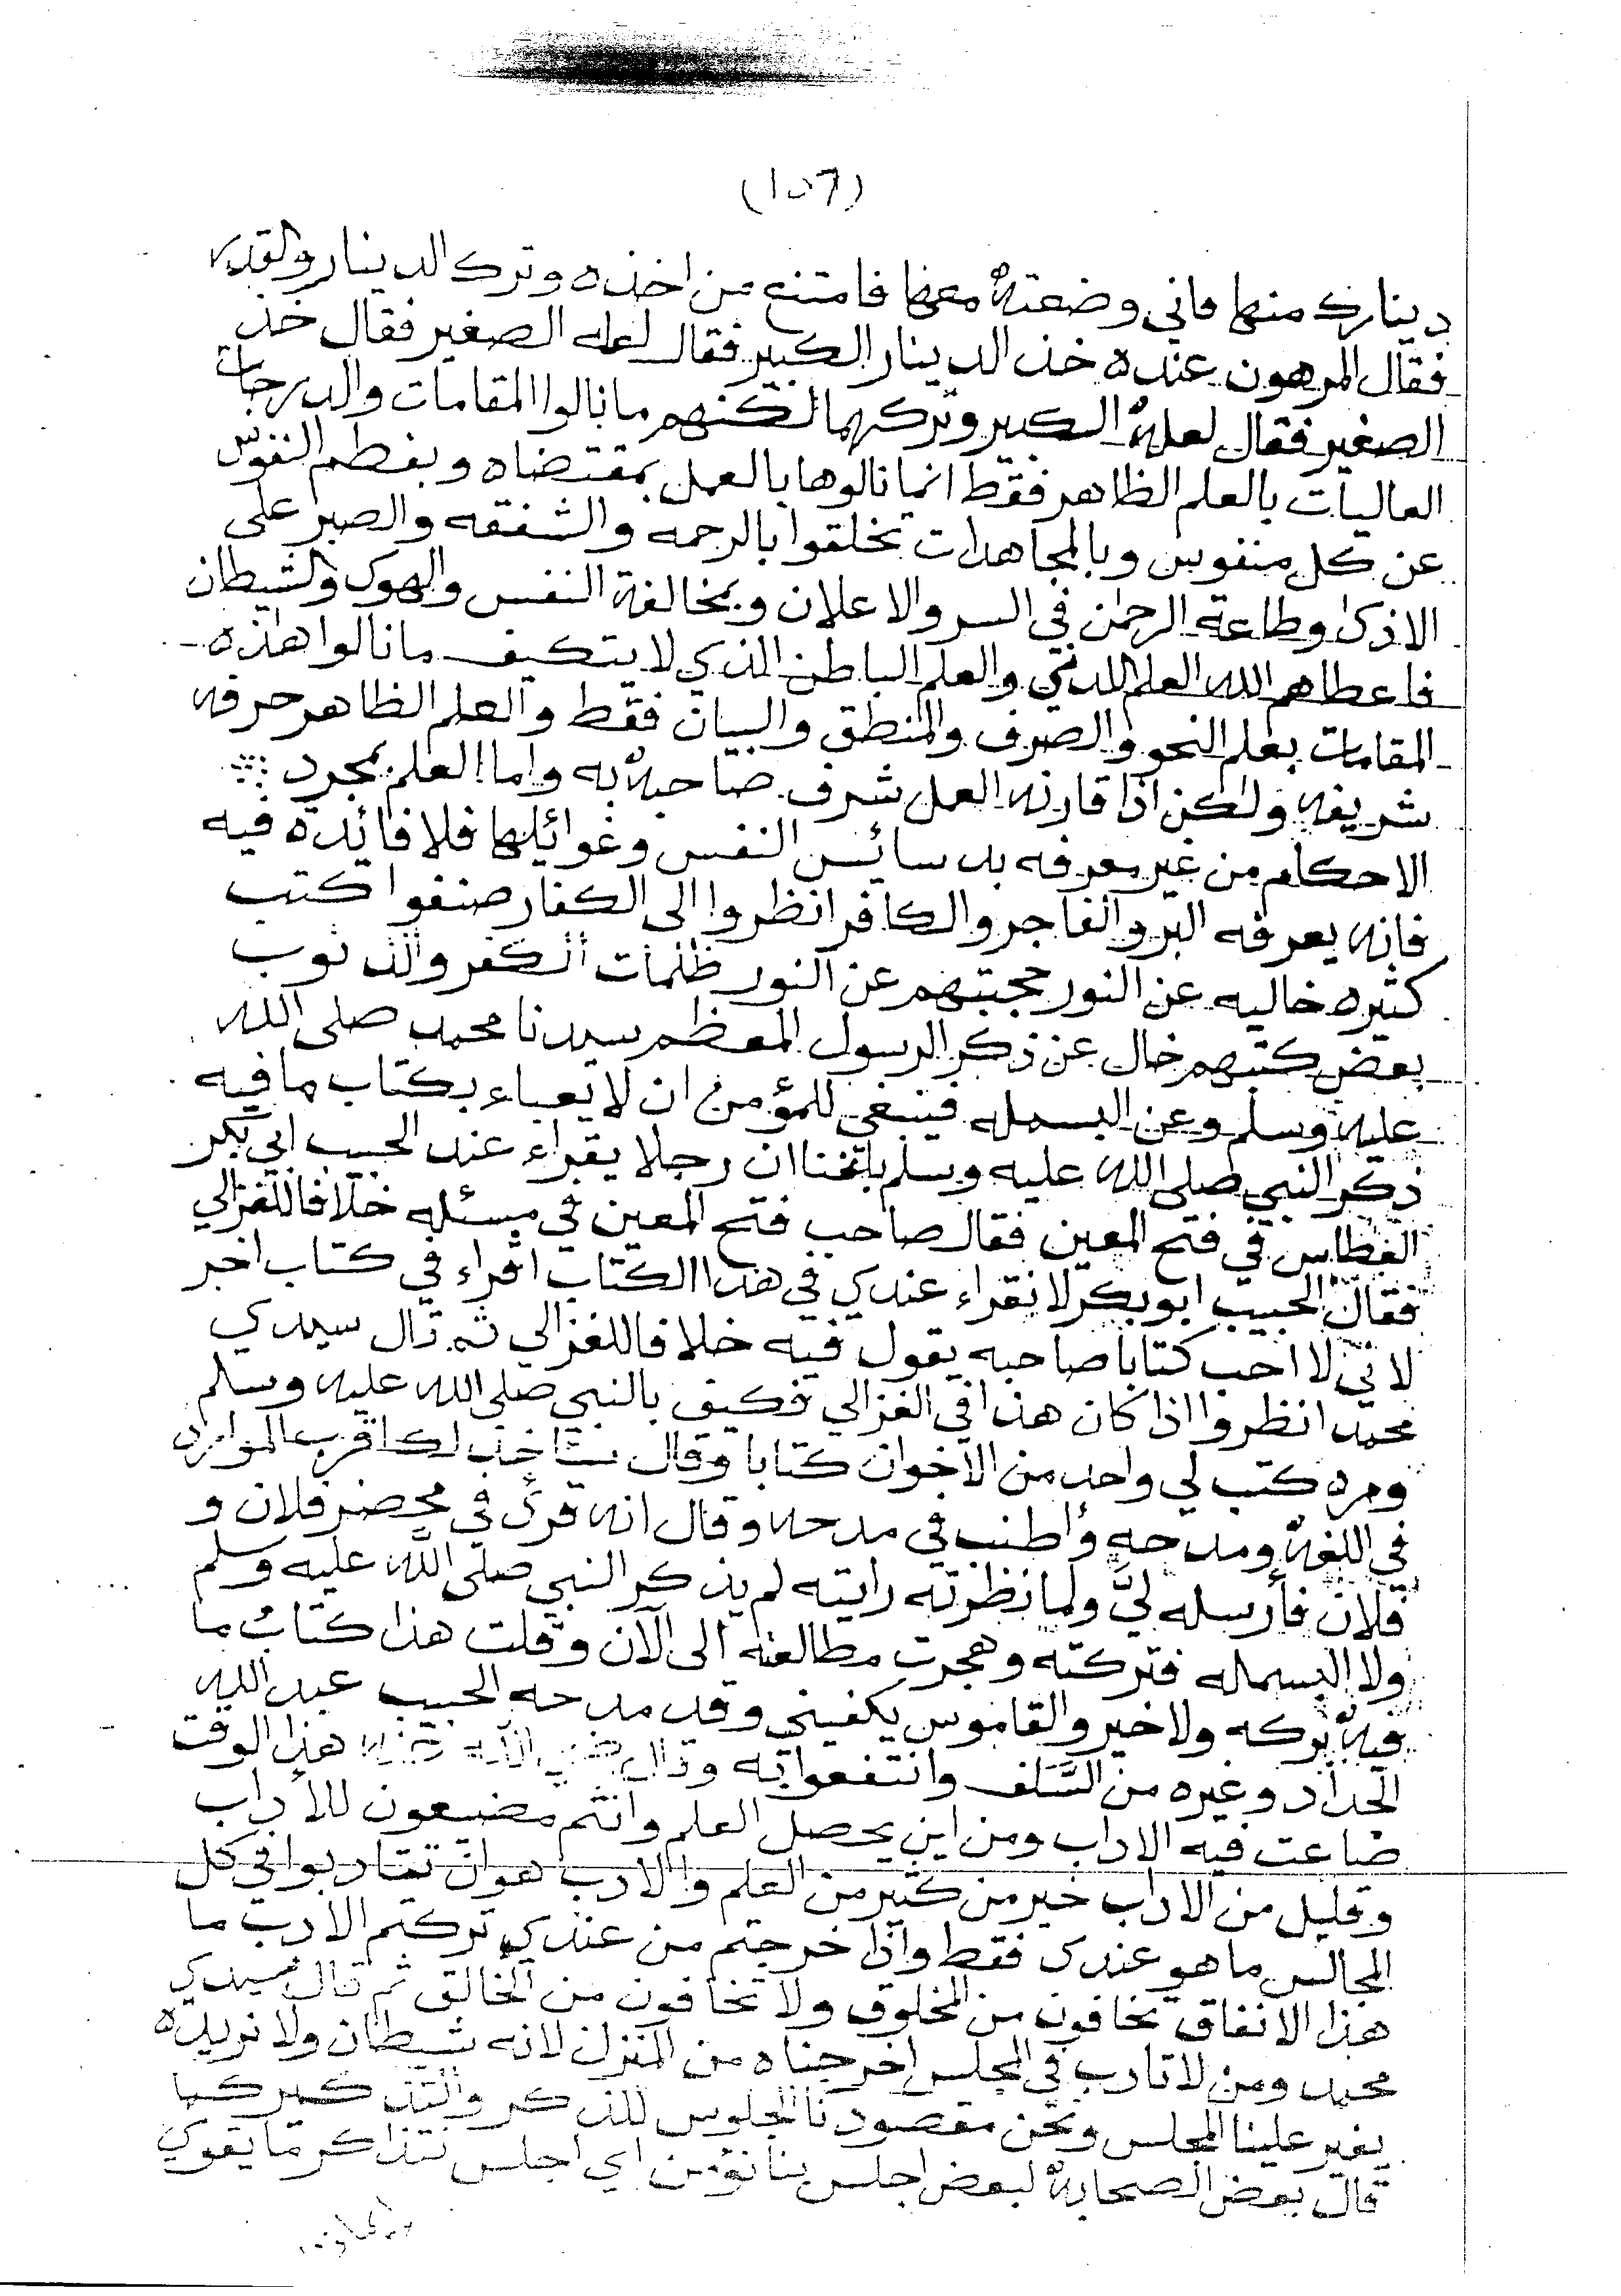 (١٥٦)
دينارك منها فاني وضعته معها فامتنع من اخذه وترك الدينار والقدر
فقال المرهون عنده خذ الدينار الكبير فقال لعله الصغير فقال خذ
الصغير فقال لعله الكبير وتركهما لكنهم ما نالوا المقامات والدرجات
العاليات بالعلم الظاهر فقط انما نالوها بالعمل بمقتضاه وبفطم النفوس
عن كل منفوس وبالمجاهدات تخلقوا بالرحمه والشفقه والصبر على
الاذى وطاعة الرحمن في السر والاعلان وبمخالفة النفس والهوى والشيطان
فاعطاهم الله العلم اللدني والعلم الباطن الذي لا يتكيف ما نالوا هذه
المقامات بعلم النحو والصرف والمنطق والبيان فقط والعلم الظاهر حرفه
شريفه ولكن اذا قارنه العمل شرف صاحبه به واما العلم بمجرد
الاحكام من غير معرفه بدسائس النفس وغوائلها فلا فائده فيه
فانه يعرفه البر والفاجر والكافر انظروا الى الكفار صنفوا كتب
كثيره خاليه عن النور حجبتهم عن النور ظلمات الكفر والذنوب
بعض كتبهم خال عن ذكر الرسول المعظم سيدنا محمد صلى الله
عليه وسلم وعن البسمله فينبغي للمؤمن ان لا يعباء بكتاب ما فيه
ذكر النبي صلى الله عليه وسلم بلغنا ان رجلا يقراء عند الحبيب ابي بكر
العطاس في فتح المعين فقال صاحب فتح المعين في مسئله خلافا للغزالي
فقال الحبيب ابو بكر لا تقراء عندي في هذا الكتاب اقراء في كتاب اخر
لاني لا احب كتابا صاحبه يقول فيه خلافا للغزالي ثم قال سيدي
محمد انظروا اذا كان هذا في الغزالي فكيف بالنبي صلى الله عليه وسلم
ومره كتب لي واحد من الاخوان كتابا وقال سآخذ لك اقرب الموارد
في اللغه ومدحه وأطنب في مدحه وقال انه قرئ في محضر فلان و
فلان فأرسله لي ولما نظرته رايته لم يذكر النبي صلى الله عليه وسلم
ولا البسمله فتركته وهجرت مطالعته الى الآن وقلت هذا كتاب ما
فيه بركه ولا خير والقاموس يكفيني وقد مدحه الحبيب عبد الله
الحداد وغيره من السلف وانتفعوا به وقال رضي الله عنه هذا الوقت
ضاعت فيه الاداب ومن اين يحصل العلم وانتم مضيعون للأداب
وقليل من الاداب خير من كثير من العلم والادب هو ان تتادبوا في كل
المجالس ما هو عندي فقط واذا خرجتم من عندي تركتم الادب ما
هذا الا نفاق تخافون من المخلوق ولا تخافون من الخالق ثم قال سيدي
محمد ومن لا تادب في المجلس اخرجناه من المنزل لانه شيطان ولا نريده
يغير علينا المجلس ونحن مقصودنا الجلوس للذكر والتذكير كما
قال بعض الصحابه لبعض اجلس بنا نؤمن اي اجلس نتذاكر ما يقوي